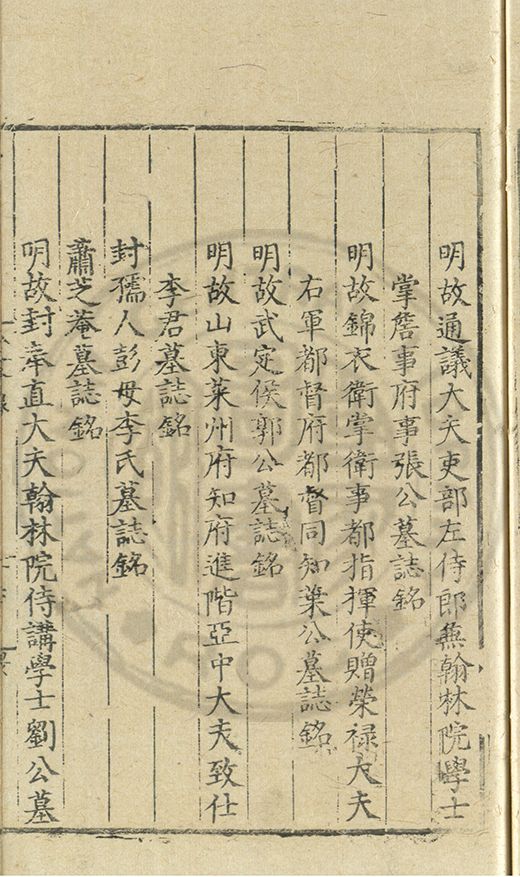 明故通議大夫吏部左侍郎兼翰林院學士
掌詹事府事張公墓誌銘
明故錦衣衛掌衛事都指揮使贈榮禄大夫
右軍都督府都督同知葉公墓誌銘
明故武定侯郭公墓誌銘
明故山東萊州府知府進階亞中大夫致仕
李君墓誌銘
封孺人彭母李氏墓誌銘
蕭芝菴墓誌銘
明故封奉直大夫翰林院侍講學士劉公墓